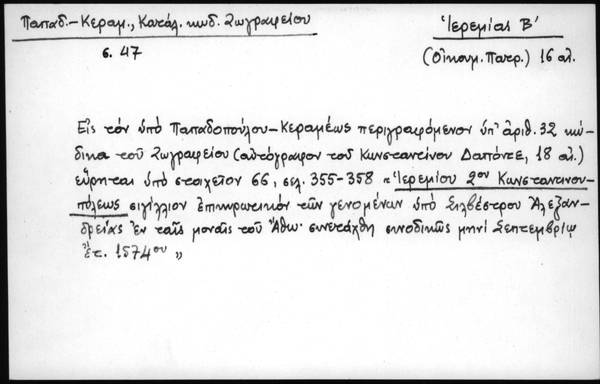 Παπαδ.-Κεραμ., Κατάλ. κωδ. Ζωγραφείου
Ἱερεμίας Β'
σ. 47
(Οἰκουμ. Πατρ.) 16 αἰ.
Εἰς τὸν ὑπὸ Παπαδοπούλου-Κεραμέως περιγραφόμενον ὑπ' ἀριθ. 32 κώ-
δικα τοῦ Ζωγραφείου (αὐτόγραφον τοῦ Κωνσταντίνου Δαπόντε, 18 αἰ.)
εὕρηται ὑπὸ στοιχεῖον 66, σελ. 355-358 « Ἱερεμίου 2ου Κωνσταντινου-
πόλεως σιγίλλιον ἐπικυρωτικὸν τῶν γενομένων ὑπὸ Σιλβέστρου Ἀλεξαν-
δρείας ἐν ταῖς μοναῖς τοῦ Ἄθω· συνετάχθη συνοδικῶς μηνὶ Σεπτεμβρίῳ
ἔτ. 1574ου »